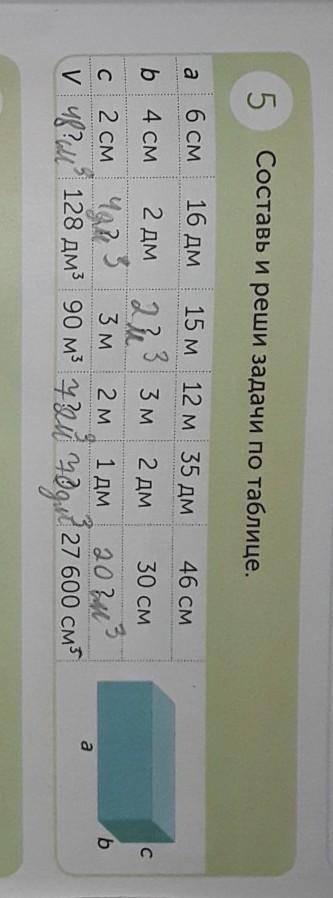 5 Составь и реши задачи по таблице.
a 6 см 16 дм 15 м 12 м 35 дм 46 см
b 4 см 2 дм 2?м³ 3 м 2 дм 30 см
c 2 см 4?дм³ 3 м 2 м 1 дм 20?м³
V 48?см³ 128 дм³ 90 м³ 72м³ 70дм³ 27 600 см³
a
b
c